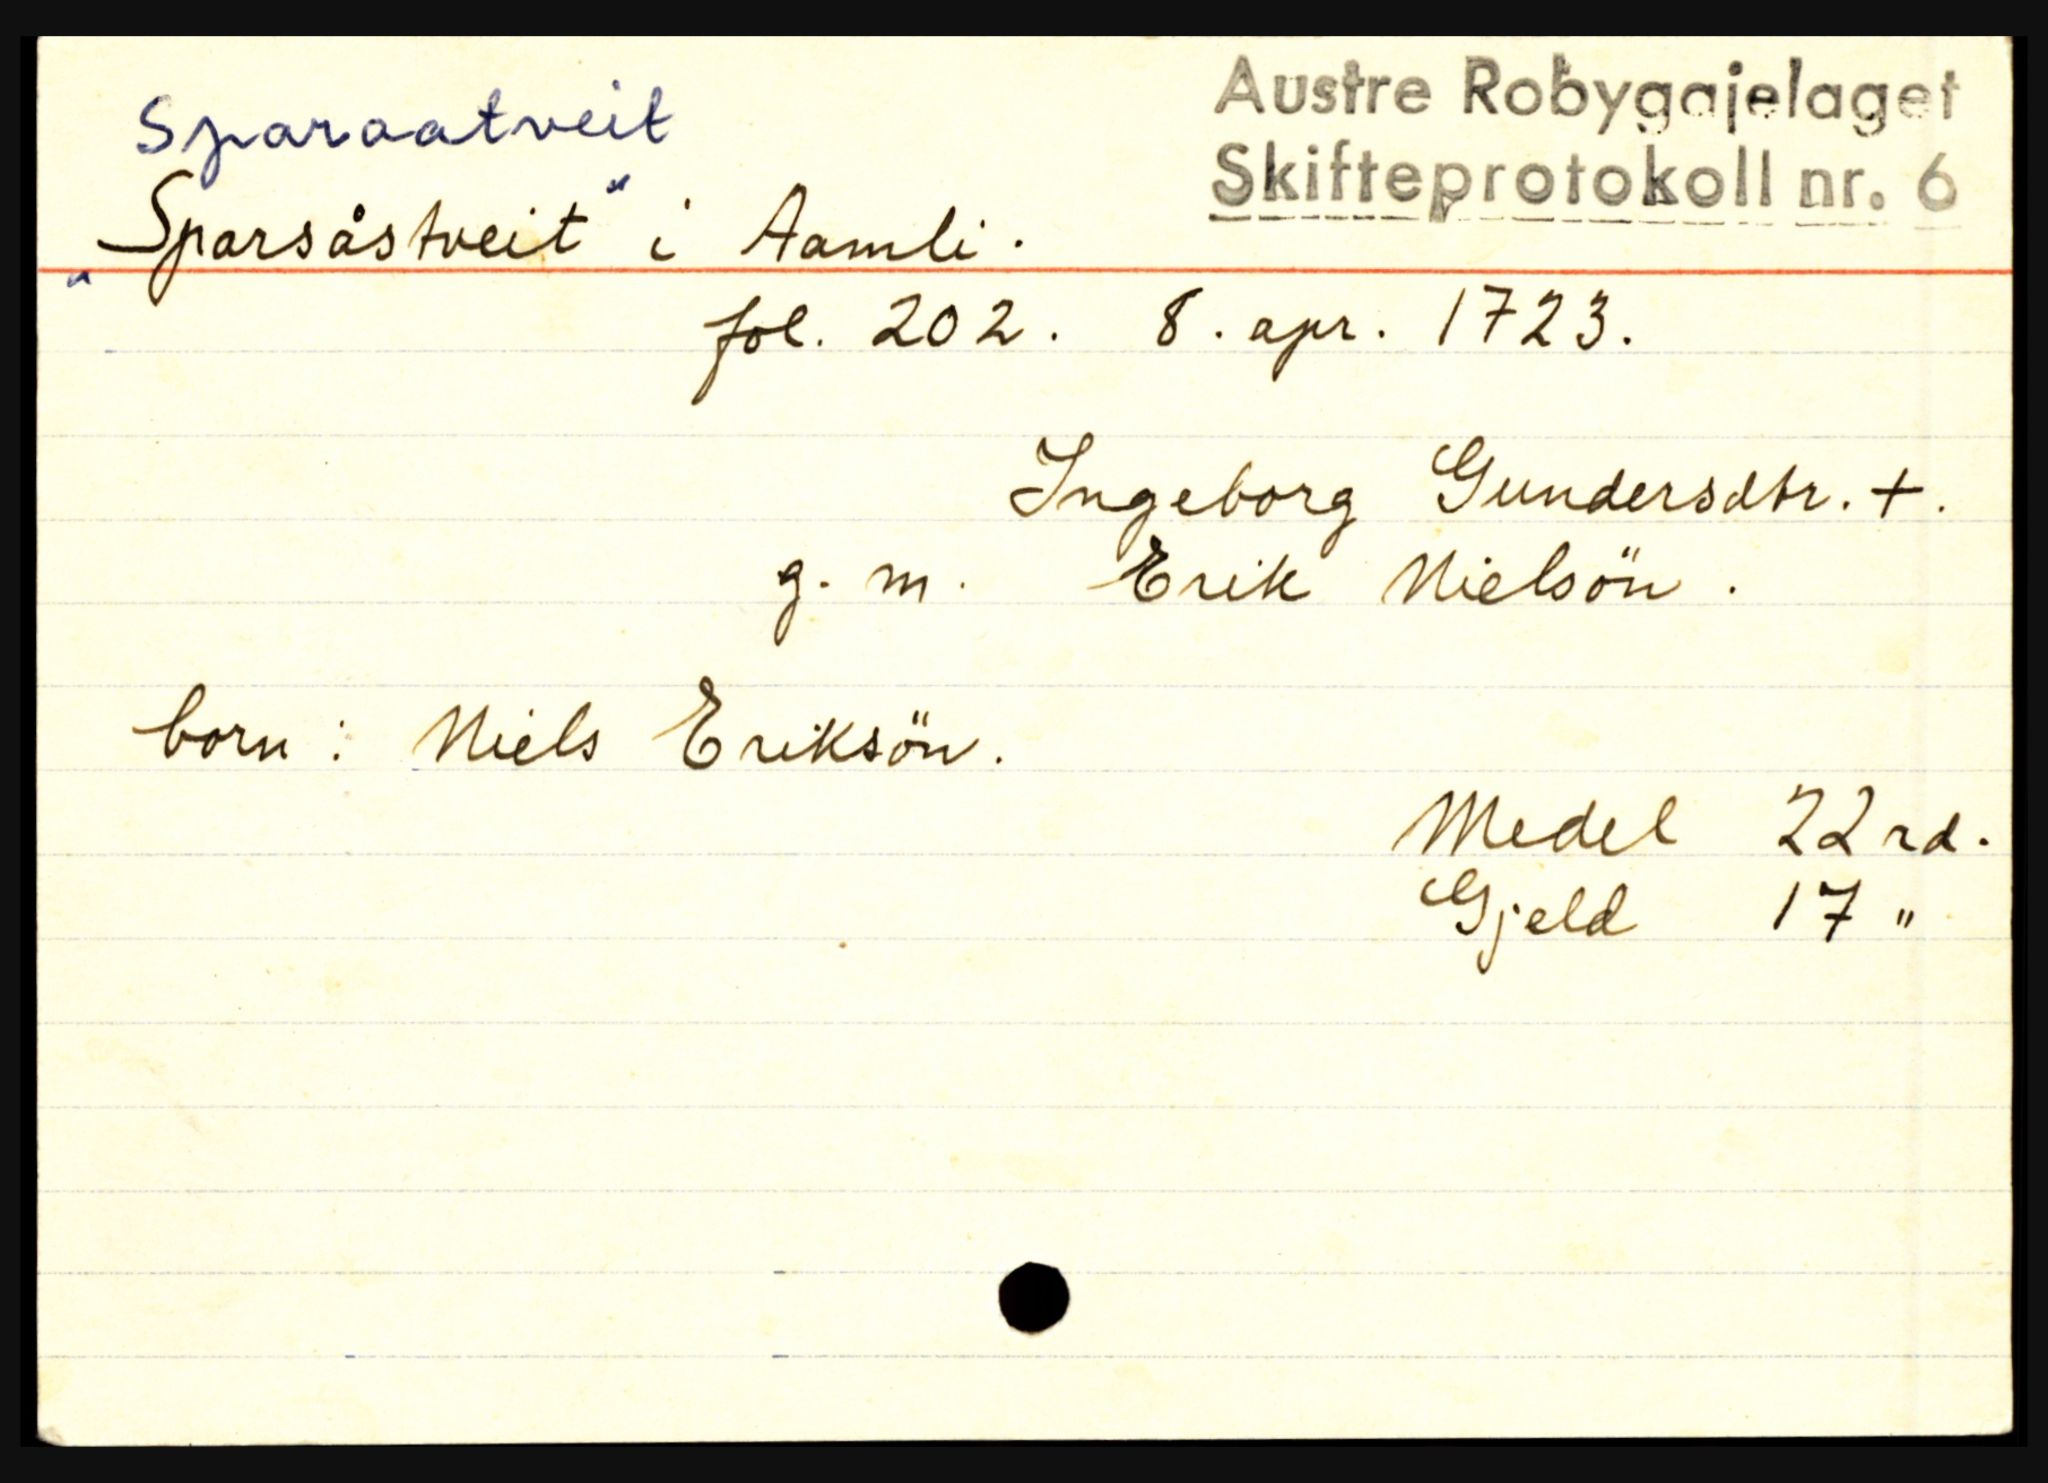 Sparaatveit
Austre Robygdjelaget
Skifteprotokoll nr. 6
"Sparsåstveit" i Aamli.
fol. 202. 8. apr. 1723.
Ingeborg Gundersdtr. +.
g. m. Erik Nielsön.
born: Niels Eriksön.
Medel 22 rd.
Gjeld 17 "